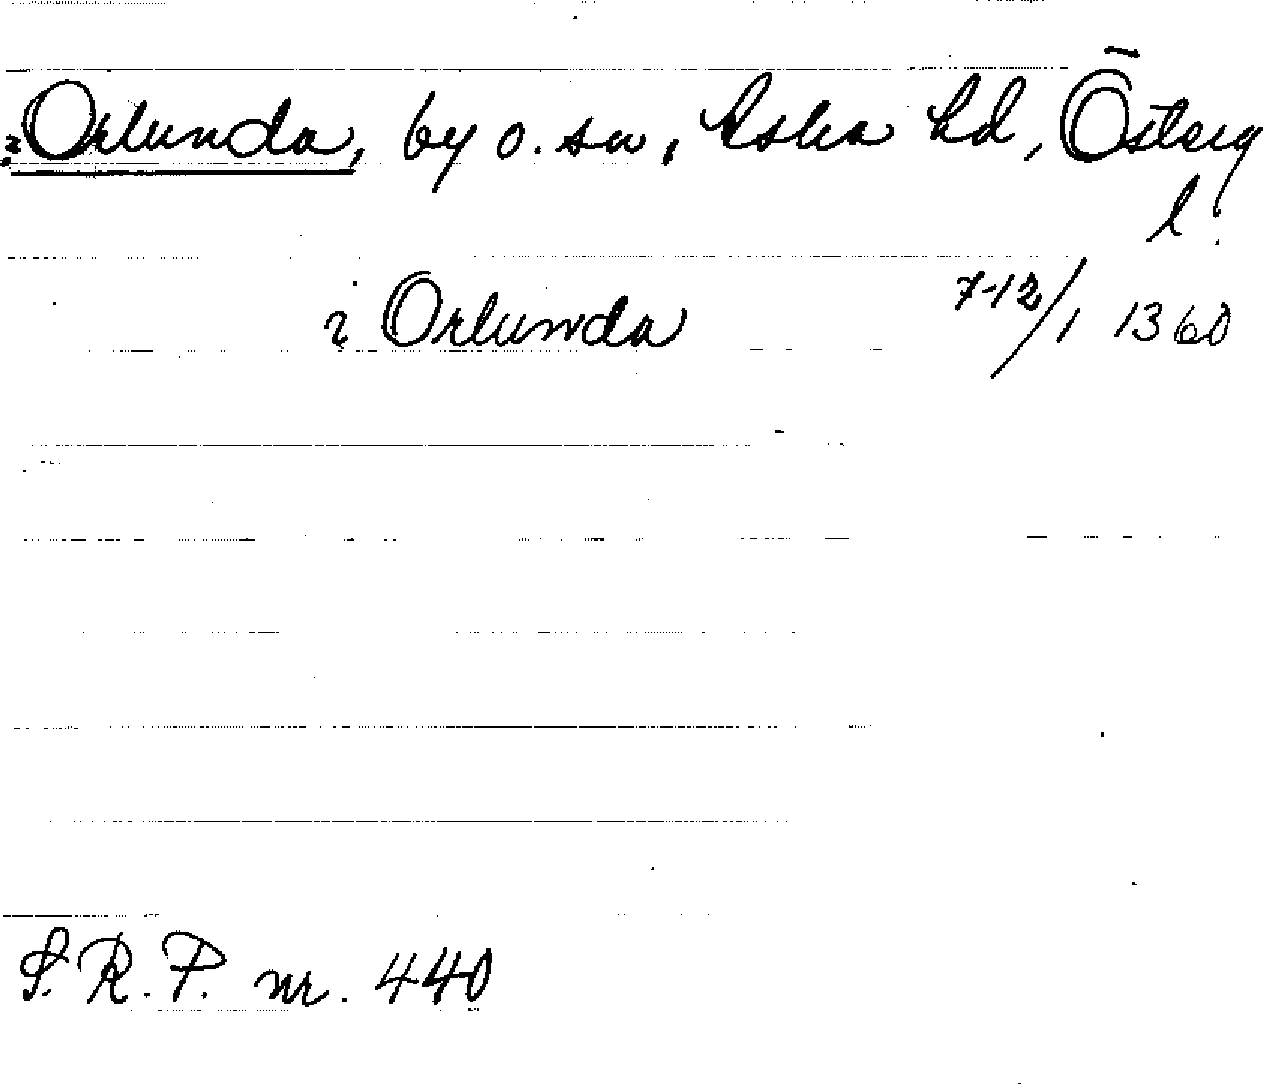 ? Orlunda, by o. sn, Aska hd, Österg
l.
i Orlunda 7-12/1 1360
S.R.P. nr. 440